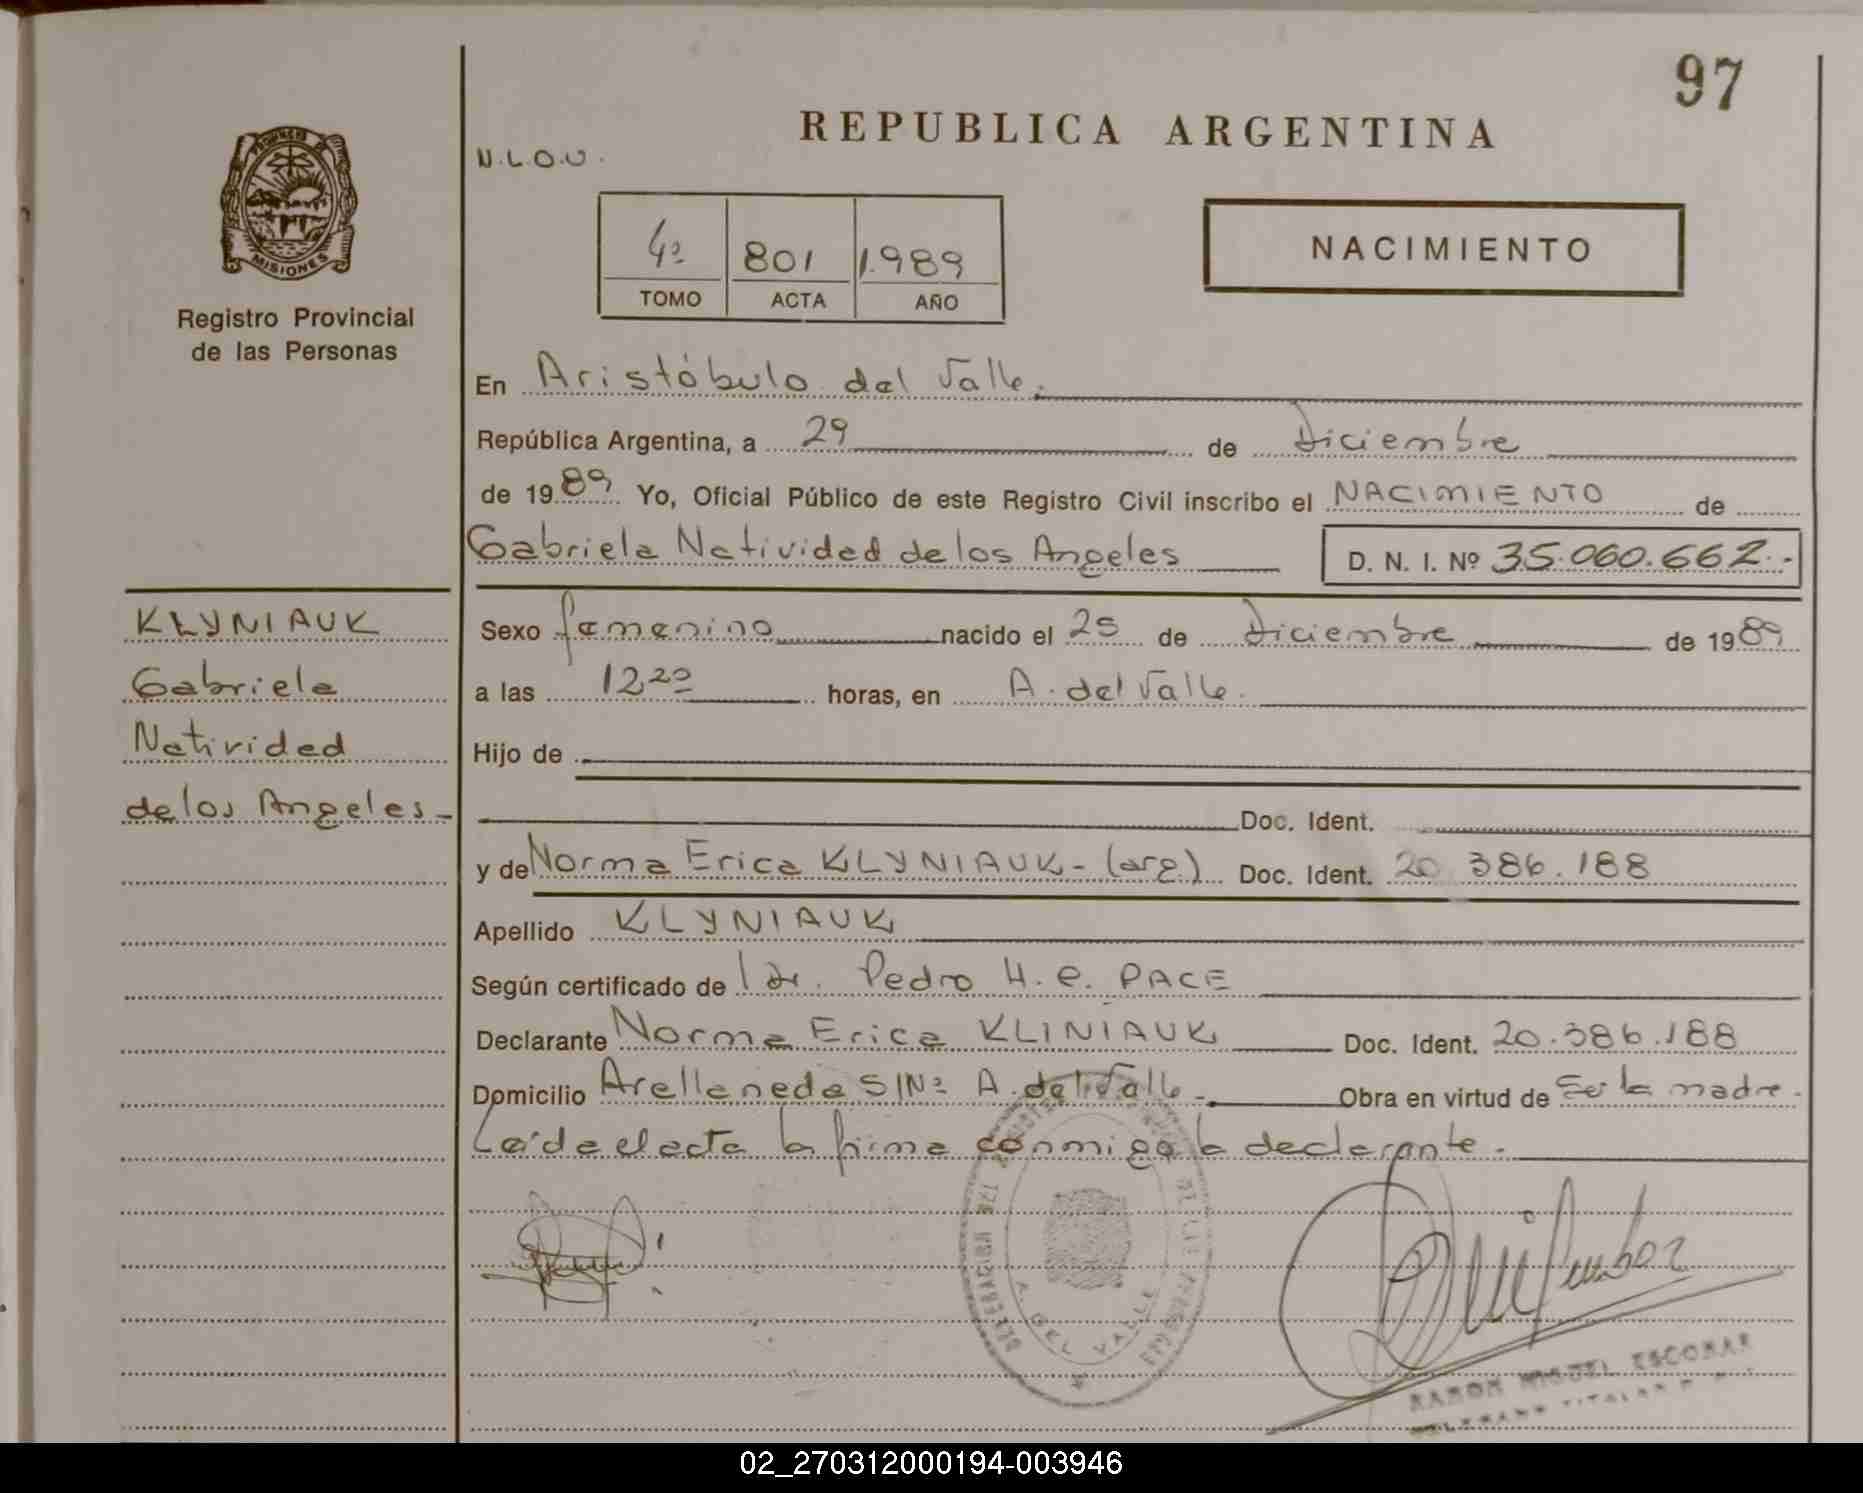 97
REPUBLICA ARGENTINA
N.L.O.U.
PROVINCIA DE
MISIONES
Registro Provincial
de las Personas
4º 801 1.989
TOMO ACTA AÑO
NACIMIENTO
En Aristóbulo del Valle.
República Argentina, a 29 de Diciembre
de 1989 Yo, Oficial Público de este Registro Civil inscribo el NACIMIENTO de
Gabriela Natividad de los Angeles D. N. I. Nº 35.060.662.-
KLYNIAUK
Gabriela
Natividad
de los Angeles-
Sexo femenino nacido el 25 de Diciembre de 1989
a las 12²⁰ horas, en A. del Valle.
Hijo de
Doc. Ident.
y de Norma Erica KLYNIAUK - (arg.) Doc. Ident. 20 386.188
Apellido KLYNIAUK
Según certificado de l Dr. Pedro H. e. PACE
Declarante Norma Erica KLINIAUK Doc. Ident. 20.386.188
Domicilio Arellaneda S/Nº A. del Valle - Obra en virtud de Ser la madre.
Leída el acta la firma conmigo la declarante.
A. DEL VALLE
RAMON MIGUEL ESCOBAR
02_270312000194-003946